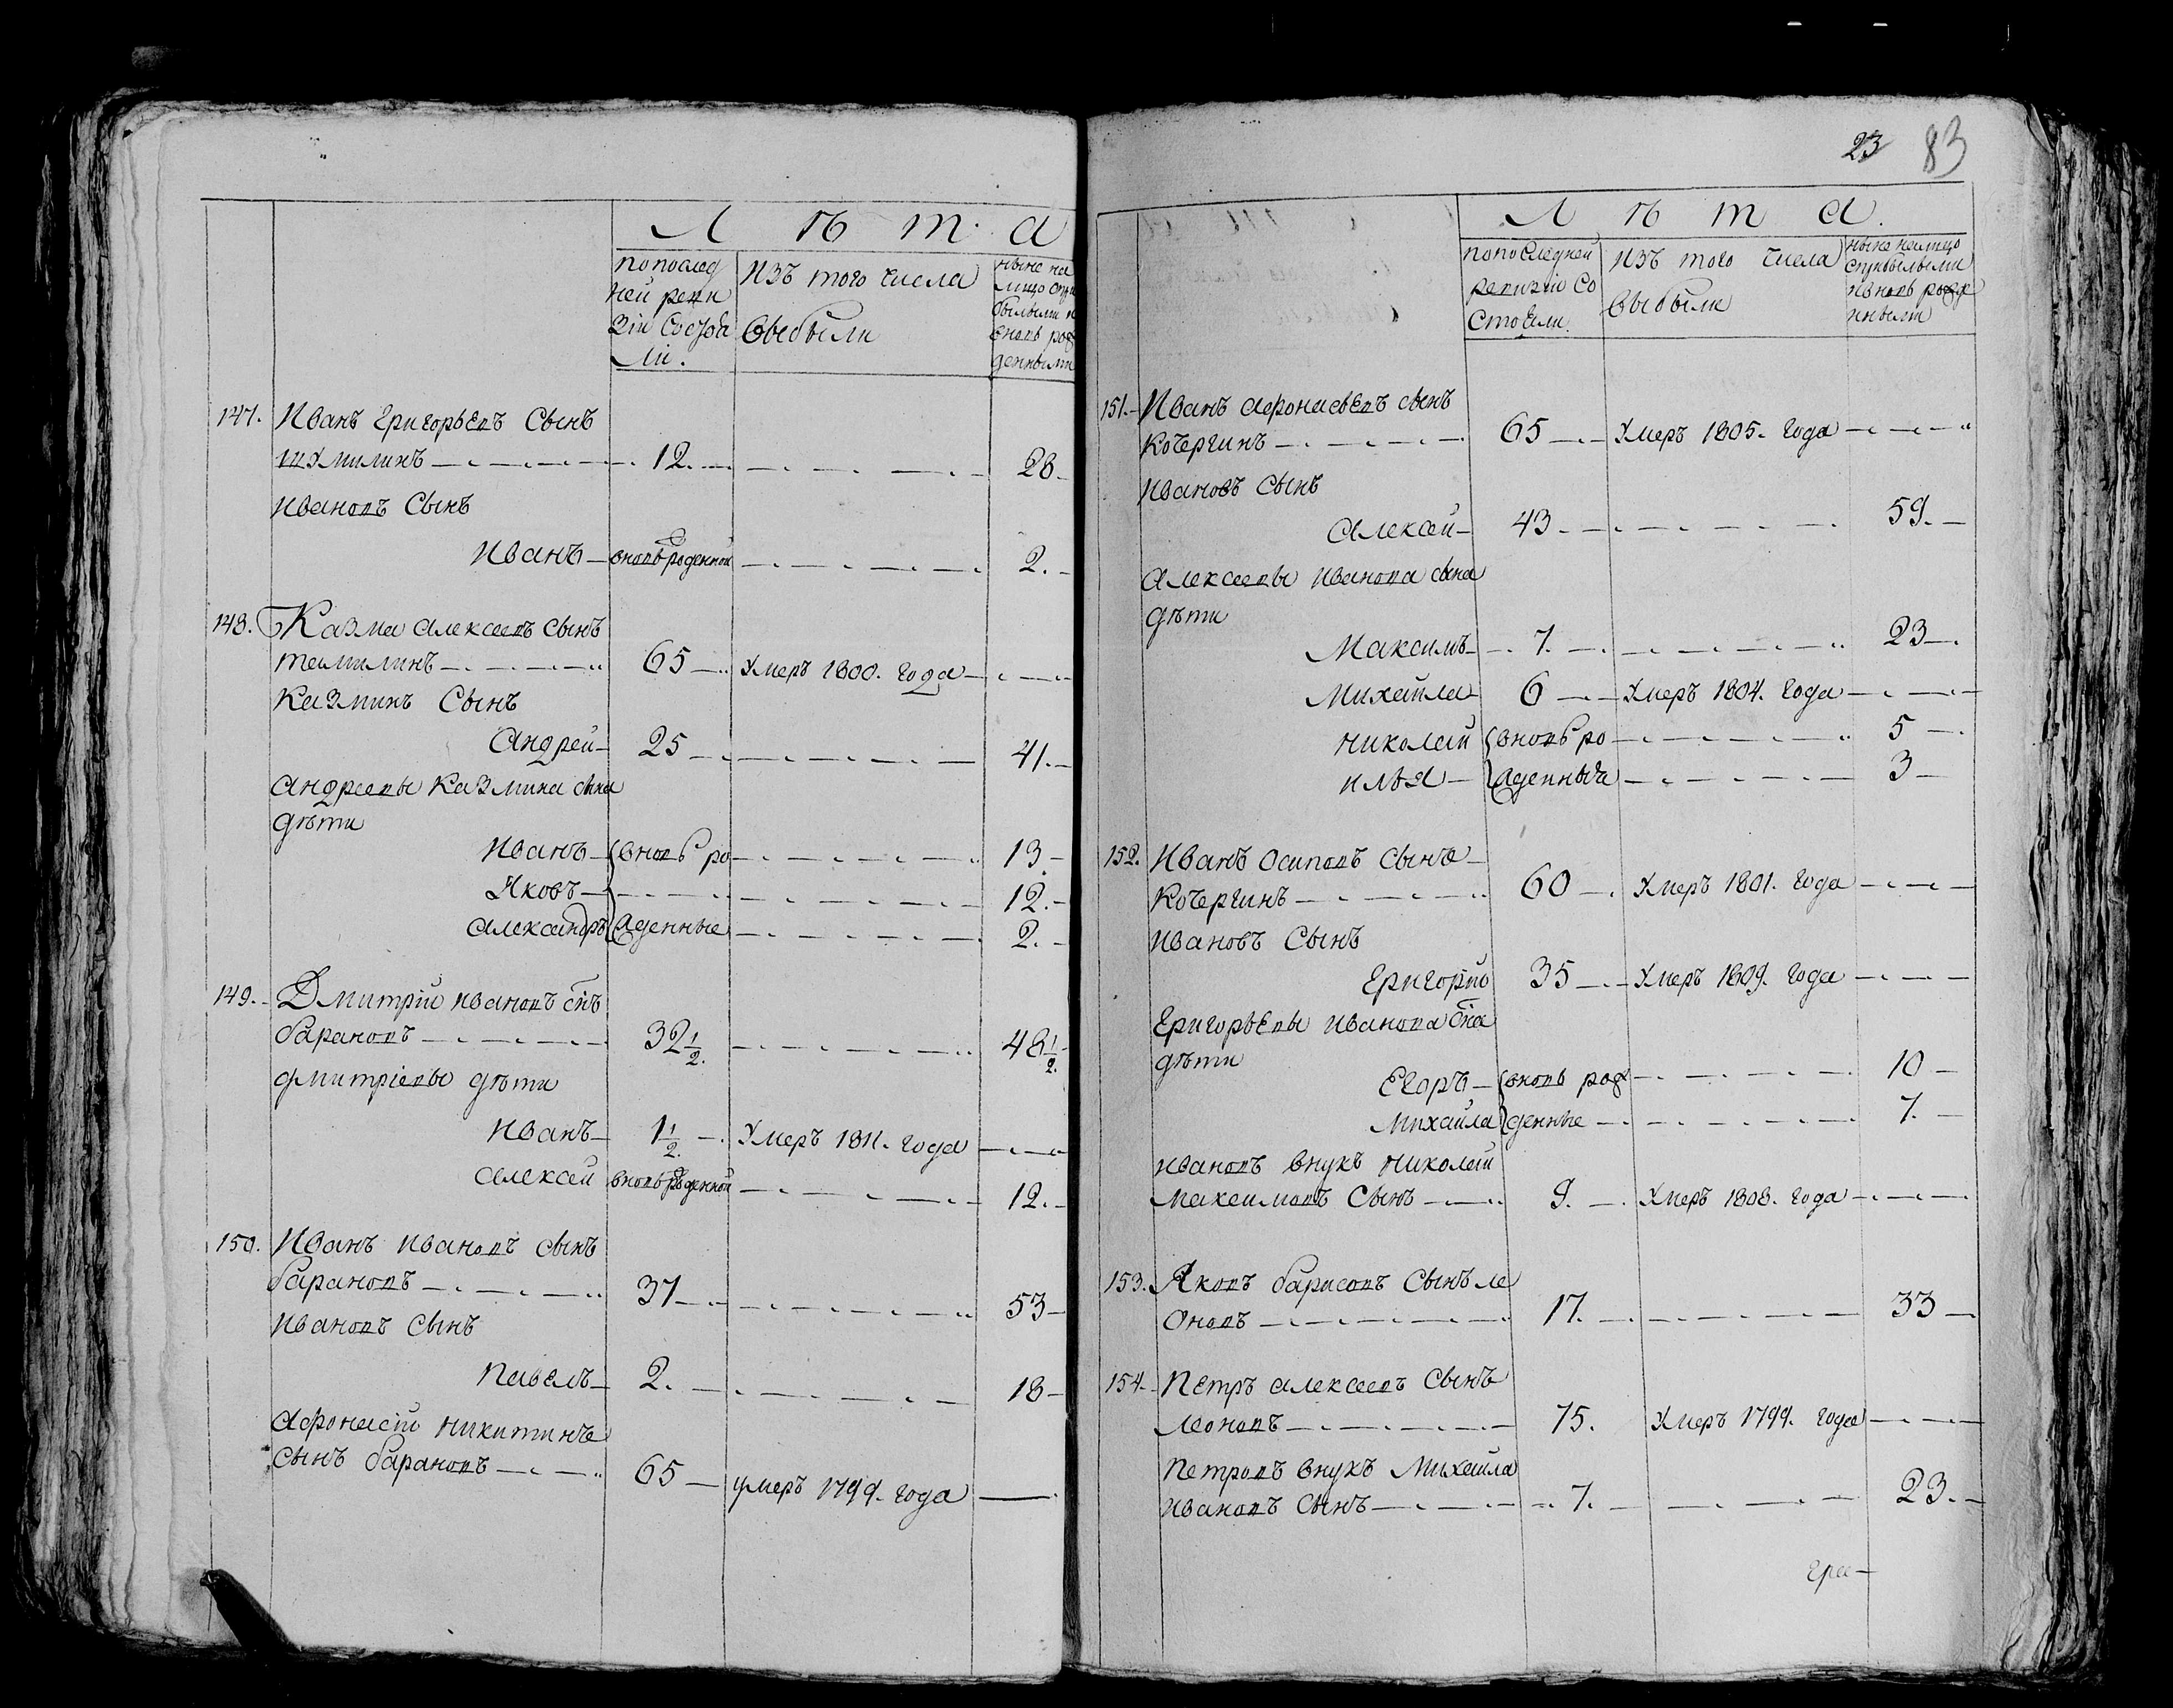 Л ѣ т а
по послед
ней реви
зіи состоя
ли.
Изъ того числа
выбыли
ныне на
лицо
былыми и
вновь рож
денными
147. Иванъ Григорьевъ Сынъ
Шумилинъ 12. 28
Ивановъ Сынъ
Иванъ вновьрожденной 2.
148. Казма Алексеевъ Сынъ
65 Умеръ 1800. Года
Казминъ Сынъ
Андрей 25 41.
Андреевы Казмина сына
дѣти
Иванъ вновь ро 13
Яковъ 12.
Александръ жденные 2.
149. Дмитрій Ивановъ снъ
барановъ 32 1/2. 48 1/2.
Дмитріевы дѣти
Иванъ 1 1/2. Умеръ 1811. года
Алексей вновьрожденной 12.
150. Иванъ Ивановъ сынъ
барановъ 37 53
Ивановъ Сынъ
Павелъ 2. 18
Афонасій Никитинъ
сынъ барановъ 65 умеръ 1799. года
23 83
Л ѣ т а.
по последней
ревизіи со
стояли.
Изъ того числа
выбыли
ныне налицо
спребылыми
и вновь рожде
нными
151. Иванъ Афонасьевъ сынъ
Кочергинъ 65 Умеръ 1805. Года
Ивановъ Сынъ
Алексей 43 59.
Алексеевы Иванова сына
дѣти
Максимъ 7. 23
Михайла 6 Умеръ 1804. Года
Николай вновь ро 5
Илья жденныя 3
152. Иванъ Осиповъ Сынъ
Кочергинъ 60 Умеръ 1801. Года
Ивановъ Сынъ
Григорій 35 Умеръ 1809. Года
Григорьевы Иванова сна
дѣти
Егоръ вновь рож 10
Михайла денные 7.
Ивановъ внукъ Николай
Максимовъ Сынъ 9. Умеръ 1808. Года
153. Яковъ барисовъ Сынъ Ле
оновъ 17. 33
154. Петръ Алексеевъ Сынъ
Леоновъ 75. Умеръ 1799. Года
Петровъ внукъ Михайла
Ивановъ Сынъ 7. 23.